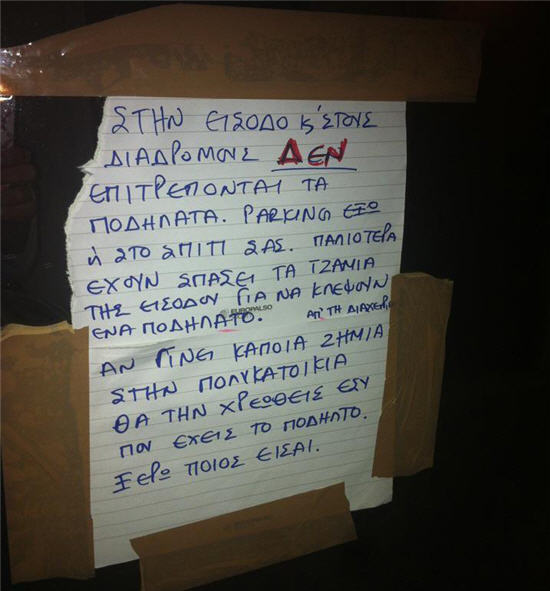 ΣΤΗΝ ΕΙΣΟΔΟ Κ' ΣΤΟΥΣ
ΔΙΑΔΡΟΜΟΥΣ ΔΕΝ
ΕΠΙΤΡΕΠΟΝΤΑΙ ΤΑ
ΠΟΔΗΛΑΤΑ. PARKING ΕΞΩ
ή ΣΤΟ ΣΠΙΤΙ ΣΑΣ. ΠΑΛΙΟΤΕΡΑ
ΕΧΟΥΝ ΣΠΑΣΕΙ ΤΑ ΤΖΑΜΙΑ
ΤΗΣ ΕΙΣΟΔΟΥ ΓΙΑ ΝΑ ΚΛΕΨΟΥΝ
ΕΝΑ ΠΟΔΗΛΑΤΟ. ΑΠ' ΤΗ ΔΙΑΧΕΙΡΙΣΗ
EUROPALSO
ΑΝ ΓΙΝΕΙ ΚΑΠΟΙΑ ΖΗΜΙΑ
ΣΤΗΝ ΠΟΛΥΚΑΤΟΙΚΙΑ
ΘΑ ΤΗΝ ΧΡΕΩΘΕΙΣ ΕΣΥ
ΠΟΥ ΕΧΕΙΣ ΤΟ ΠΟΔΗΛΤΟ.
ΞΕΡΩ ΠΟΙΟΣ ΕΙΣΑΙ.